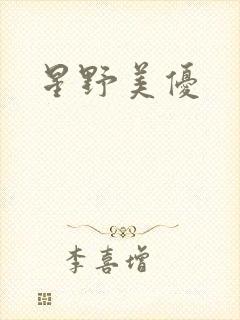 星野美優
李喜增